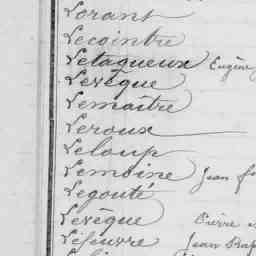 Lorant
Lecointre
Letaqueux Eugène
Levêque
Lemaître
Leroux
Leloup
Lemoine Jean
Legouté
Levêque Pierre
Lefeuvre Jean Bap